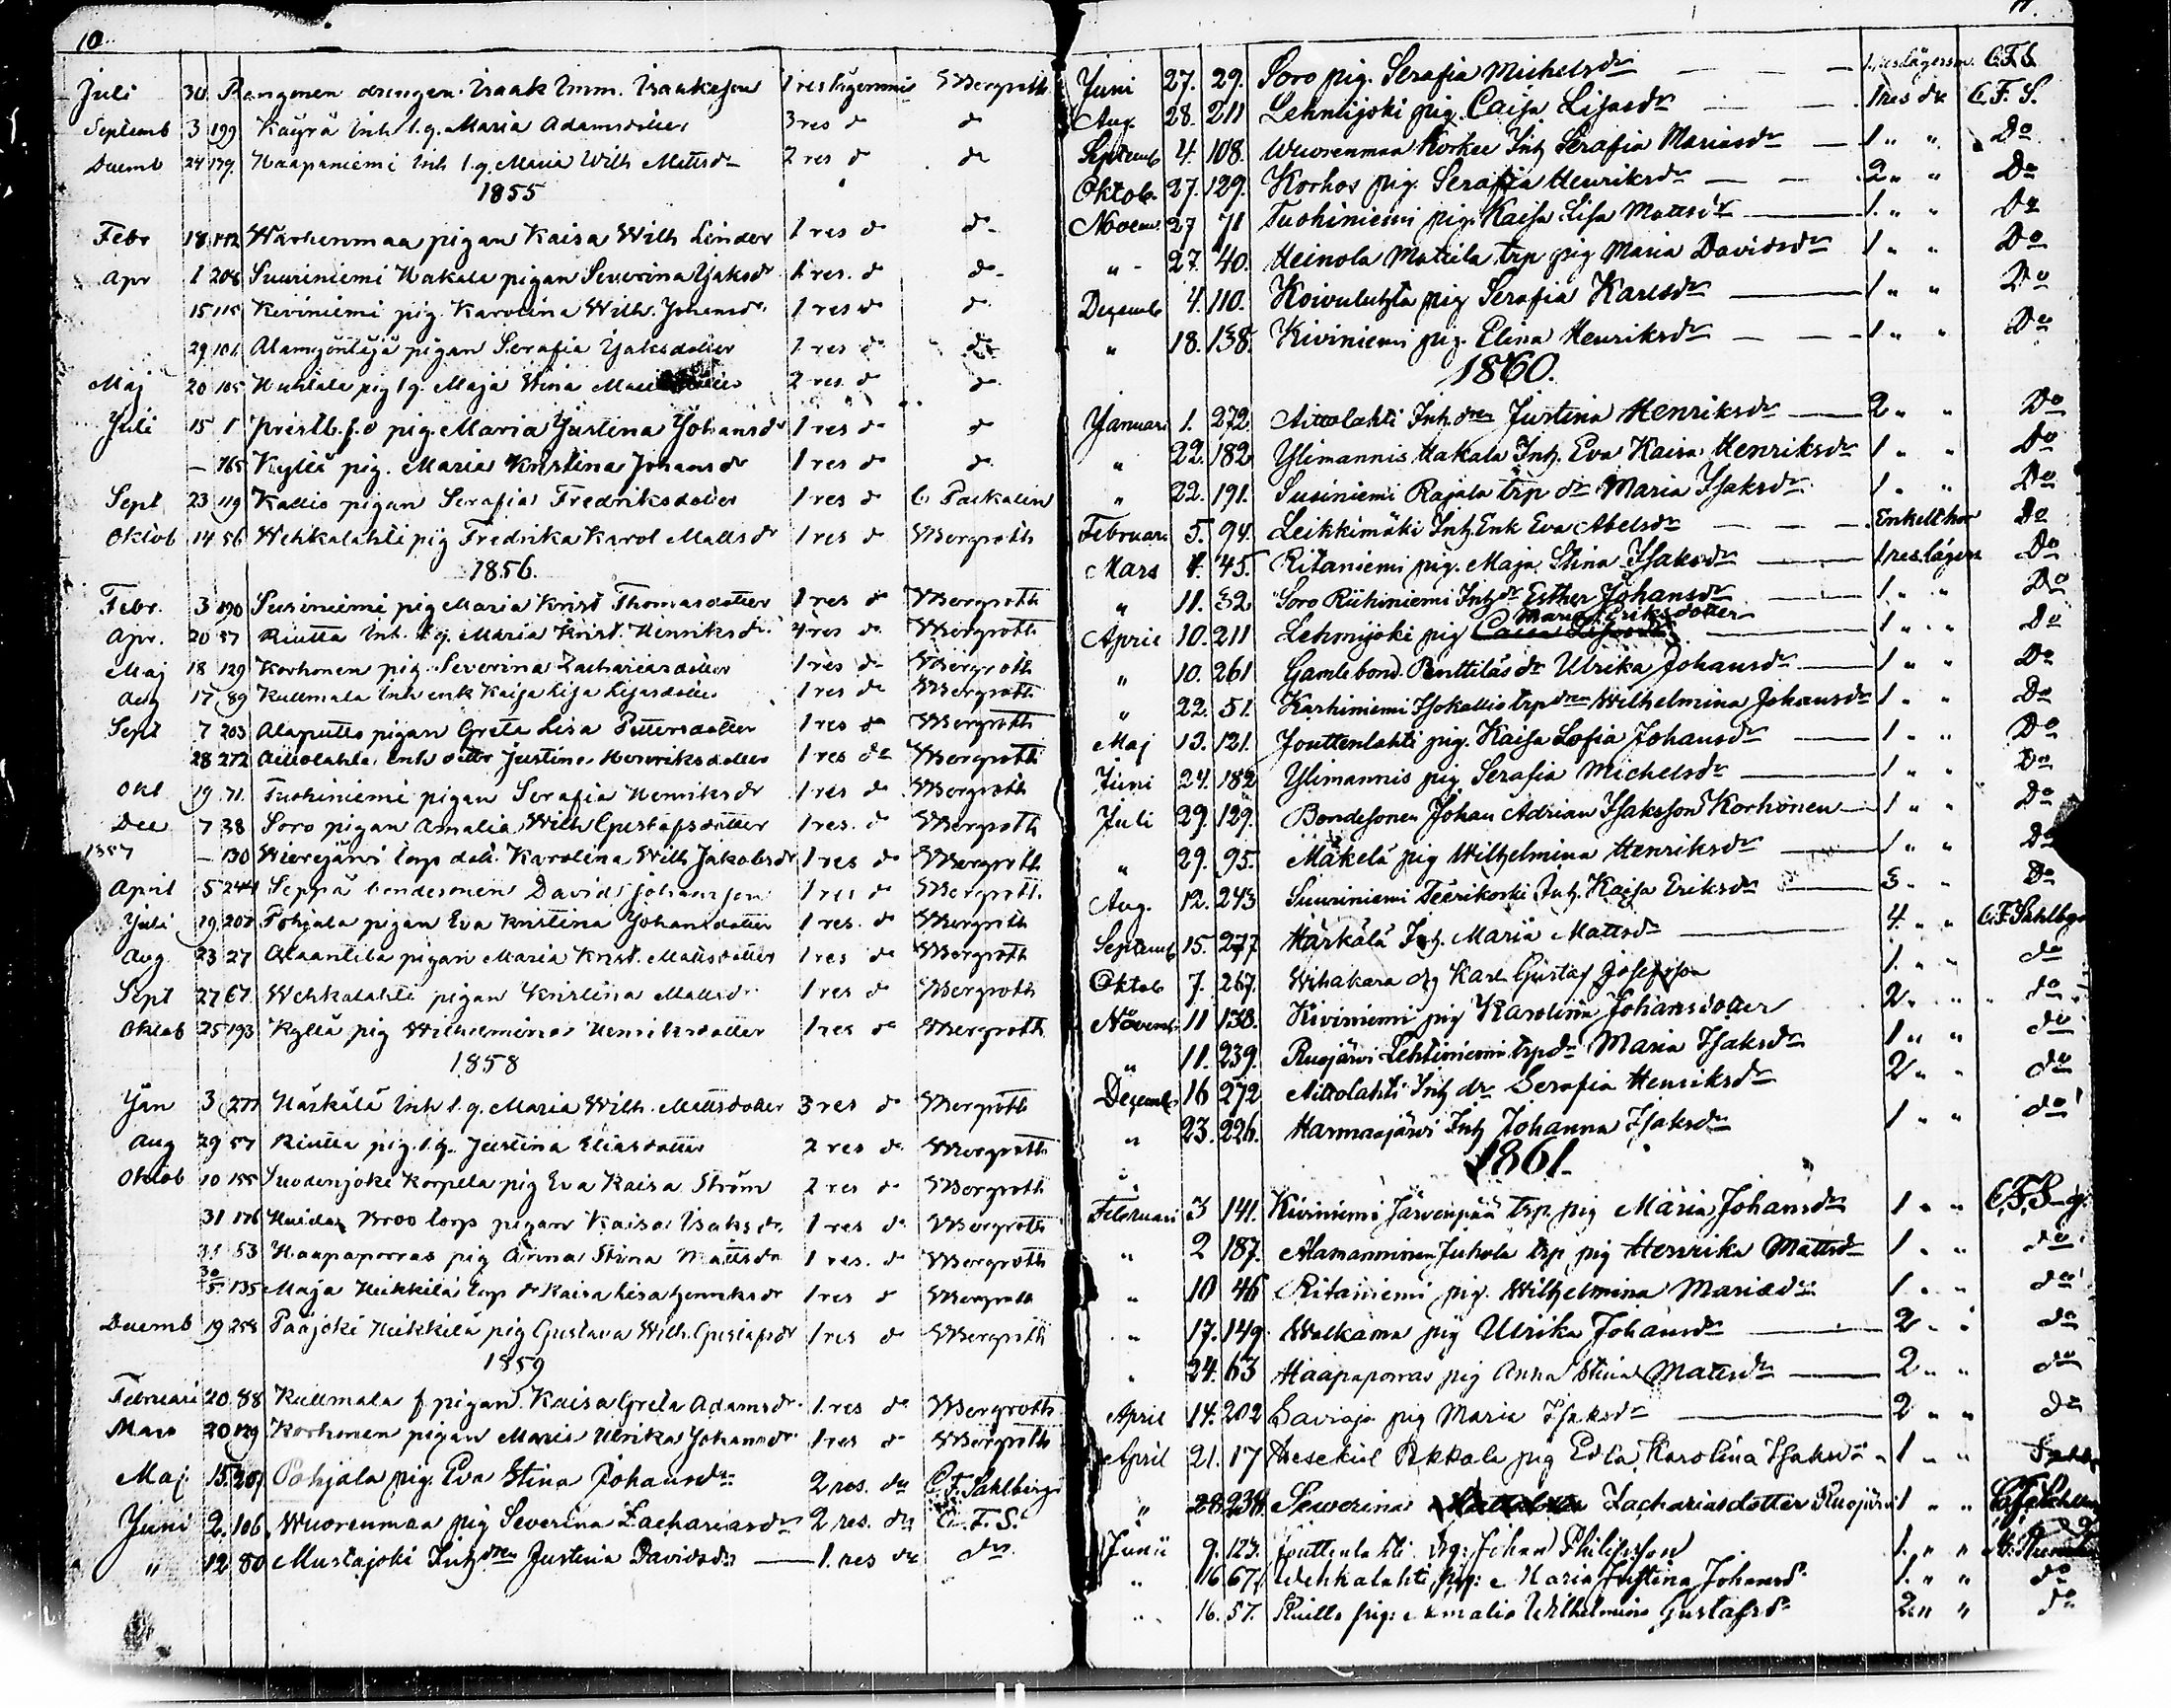 10.
Juli 30 Rangonen drengen Isaak Imm. Isaaksson 1 res lägersmål Bergroth
Septemb 3 199 Käyrä Inh. l.q. Maria Adamsdotter 3 res do do
Decemb 24 179. Haapaniemi Inh l.q. Maria Wilh Mattsdr 2 res do do
1855
Febr 18 Warhenmaa pigan Kaisa Wilh Linder 1 res do do
Apr 1 208 Suuriniemi Hakala pigan Severina Isaksdr 1 res. do do
15 115 Kiviniemi pig. Karolina Wilh. Johansdr. 1 res do do
29 101 pigan Serafia Isaksdotter 1 res do do
Maj 20 105 Huhtala pig l.q. Maja Stina 2 res do do
Juli 15 1 pig. Maria Justina Johansdr 1 res do do
— 165 Kyllä pig. Maria Kristina Johansdr 1 res do do
Sept 23 119 Kallio pigan Serafia Fredriksdotter 1 res do C Packalen
Oktob 14 56 Wehkalahti pig Fredrika Karol Mattsdr 1 res do Bergroth
1856.
Febr. 3 190 Susiniemi pig Maria Krist Thomasdotter 1 res do Bergroth
Apr. 20 57 Riutta Inh. l.q. Maria Krist. Henriksdr. 4 res do Bergroth
Maj 18 129 Korhonen pig. Severina Zachariasdotter 1 res do Bergroth
Aug 17 89 Kullmala Inh enk Kaisa Lisa Lisasdotter 1 res do Bergroth
Sept 7 203 Alaputto pigan Greta Lisa Pettersdotter 1 res do Bergroth
28 272 Aittolahti Inh dottr Justina Henriksdotter 1 res do Bergroth
Okt 19 71. Tuohiniemi pigan Serafia Henriksdr 1 res do Bergroth
Dec 7 38 Soro pigan Amalia Wilh Gustafsdotter 1 res. do Bergroth
1857 — 130 Wierejärvi torp dott. Karolina Wilh Jakobsdr 1 res do Bergroth
April 5 244 Seppä bondesonen David Johansson 1 res do Bergroth.
Juli 19 207 Pohjala pigan Eva Kristina Johansdotter 1 res. do Bergroth
Aug 23 27 Alaantila pigan Maria Krist. Mattsdotter 1 res do Bergroth
Sept 27 67. Wehkalahti pigan Kristina Mattsdr 1 res do Bergroth
Oktob 25 193 Kyllä pig Wilhelmina Henriksdotter 1 res do Bergroth
1858
Jan 3 277 Härkälä Inh l.q. Maria Wilh. Mattsdotter 3 res do Bergroth
Aug 29 57 Riutta pig. l.q. Justina Eliasdotter 2 res do Bergroth
Oktob 10 155 Suodenjoki Korpela pig Eva Kaisa Ström 2 res do Bergroth
31 176 Broo torp pigan Kaisa Isaksdr. 1 res do Bergroth
31 53 Haapaporras pig Anna Stina Mattsdr 1 res. do Bergroth
30/5 135 Maja Heikkilä torp dr Kaisa Lisa Henriksdr 1 res do Bergroth
Decemb 19 258 Paajoki Heikkilä pig Gustava Wilh. Gustafsdr 1 res do Bergroth
1859
Februari 20 88 Kullmala f pigan Kaisa Greta Adamsdr. 1 res do Bergroth
Mars 20 129 Korhonen pigan Maria Ulrika Johansdr 1 res do Bergroth
Maj 15 207 Pohjala pig. Eva Stina Johansdr 2 res. do C.F. Sahlberg
Juni 2. 106 Wuorenmaa pig Severina Zachariasdr 2 res. do C.F.S.
" 12 80 Mustajoki Inh dren Justina Davidsdr — 1 res do do.
11.
Juni 27. 29. Soro pig. Serafia Michelsdr — 1 res lägersm. C.F.S.
Aug. 28. 211 Lehmijoki pig. Caisa Lisasdr 1 res do C.F.S.
Septemb 4. 108. Wuorenmaa Korkee Inh Serafia Mariasdr — 1 " " Do
Oktob. 27. 129. Korhos pig. Serafia Henriksdr — 2 " " Do
Novem. 27 71 Tuohiniemi pig. Kaisa Lisa Mattsdr — 1. " " Do
" - 27. 40. Heinola Mattila trp pig Maria Davidsdr 1 " " Do
Decemb 4. 110. Koivulahta pig Serafia Karlsdr — 1 " " Do
" 18. 138. Kiviniemi pig. Elina Henriksdr — 1 " " Do
1860.
Januari 1. 272. Aittolahti Inh. dren Justina Henriksdr — 2 " " Do
" 22. 182 Ylimannis Hakala Inh. Eva Kaisa Henriksdr 1 " " Do
" 22. 191. Susiniemi Rajala trp dr Maria Isaksdr. 1. " " Do
Februari 5. 94. Leikkimäki Inh. Enk Eva Abelsdr — Enkelt hor Do
Mars 4. 45. Ritaniemi pig. Maja Stina Isaksdr — 1 res. lägers Do
" 11. 32 Soro Riihiniemi Inh dr Esther Johansdr — 1 " " Do
April 10. 211 Lehmijoki pig Caisa Lisasdr Maria Eriksdotter — 1 " " Do
" 10. 261 Gamlebond. Penttiläs dr Ulrika Johansdr — 1 " " Do
" 22. 51. Karhiniemi Isokallio trp dren Wilhelmina Johansdr 1 " " Do
Maj 13. 121. Jouttenlahti pig. Kaisa Sofia Johansdr — 1 " " Do
Juni 24. 182 Ylimannis pig Serafia Michelsdr — 1 " " Do
Juli 29. 129. Bondesonen Johan Adrian Isaksson Korhonen — 1 " " Do
" 29. 95. Mäkelä pig Wilhelmina Henriksdr — 1 " " Do
Aug. 12. 243 Suuriniemi Teerikoski Inh. Kaisa Eriksdr — 3. " " Do
Septemb 15. 277 Härkälä Inh. Maria Mattsdr — 4. " " C.F. Sahlbg
Oktob 7. 267. Wihakara drg Karl Gustaf Josefsson 1. " " do
Novemb 11 138. Kiviniemi pig Karolina Johansdotter 2. " " do
" 11. 239. Ruojärvi Lehtiniemi trp dr Maria Isaksdr 1 " " do
Decemb 16 272 Aittolahti Inh dr Serafia Henriksdr 2 " " do
" 23. 226. Harmaajärvi Inh Johanna Isaksdr 1 " " do
1861.
Februari 3 141. Kiviniemi Järvenpää trp pig Maria Johansdr 1 " " C.F.S-g.
" 2 187. Alamanninen Juhola trp pig Henrika Mattsdr 1 " " do
" 10 46 Ritaniemi pig. Wilhelmina Mariædr 1 " " do
" 17. 149. Walkama pig Ulrika Johansdr — 2 " " do
" 24. 63 Haapaporras pig Anna Stina Mattsdr — 2 " " do
April 14. 202 Savioja pig Maria Isaksdr — 2 " " do
April 21. 17 Pekkala pig Edla Karolina Isaksdr 1 " "
" 28. 238. Sewerina Zachariasdotter Ruojärvi 1 " "
Junii 9. 123. Jouttenlahti drg: Johan Philipsson 1. " "
" 16 67. Wehkalahti pig: Maria Justina Johansdr. 1. " " do
" 16. 57. Riutta pig: Amalia Wilhelmina Gustafsdr 2 " " do